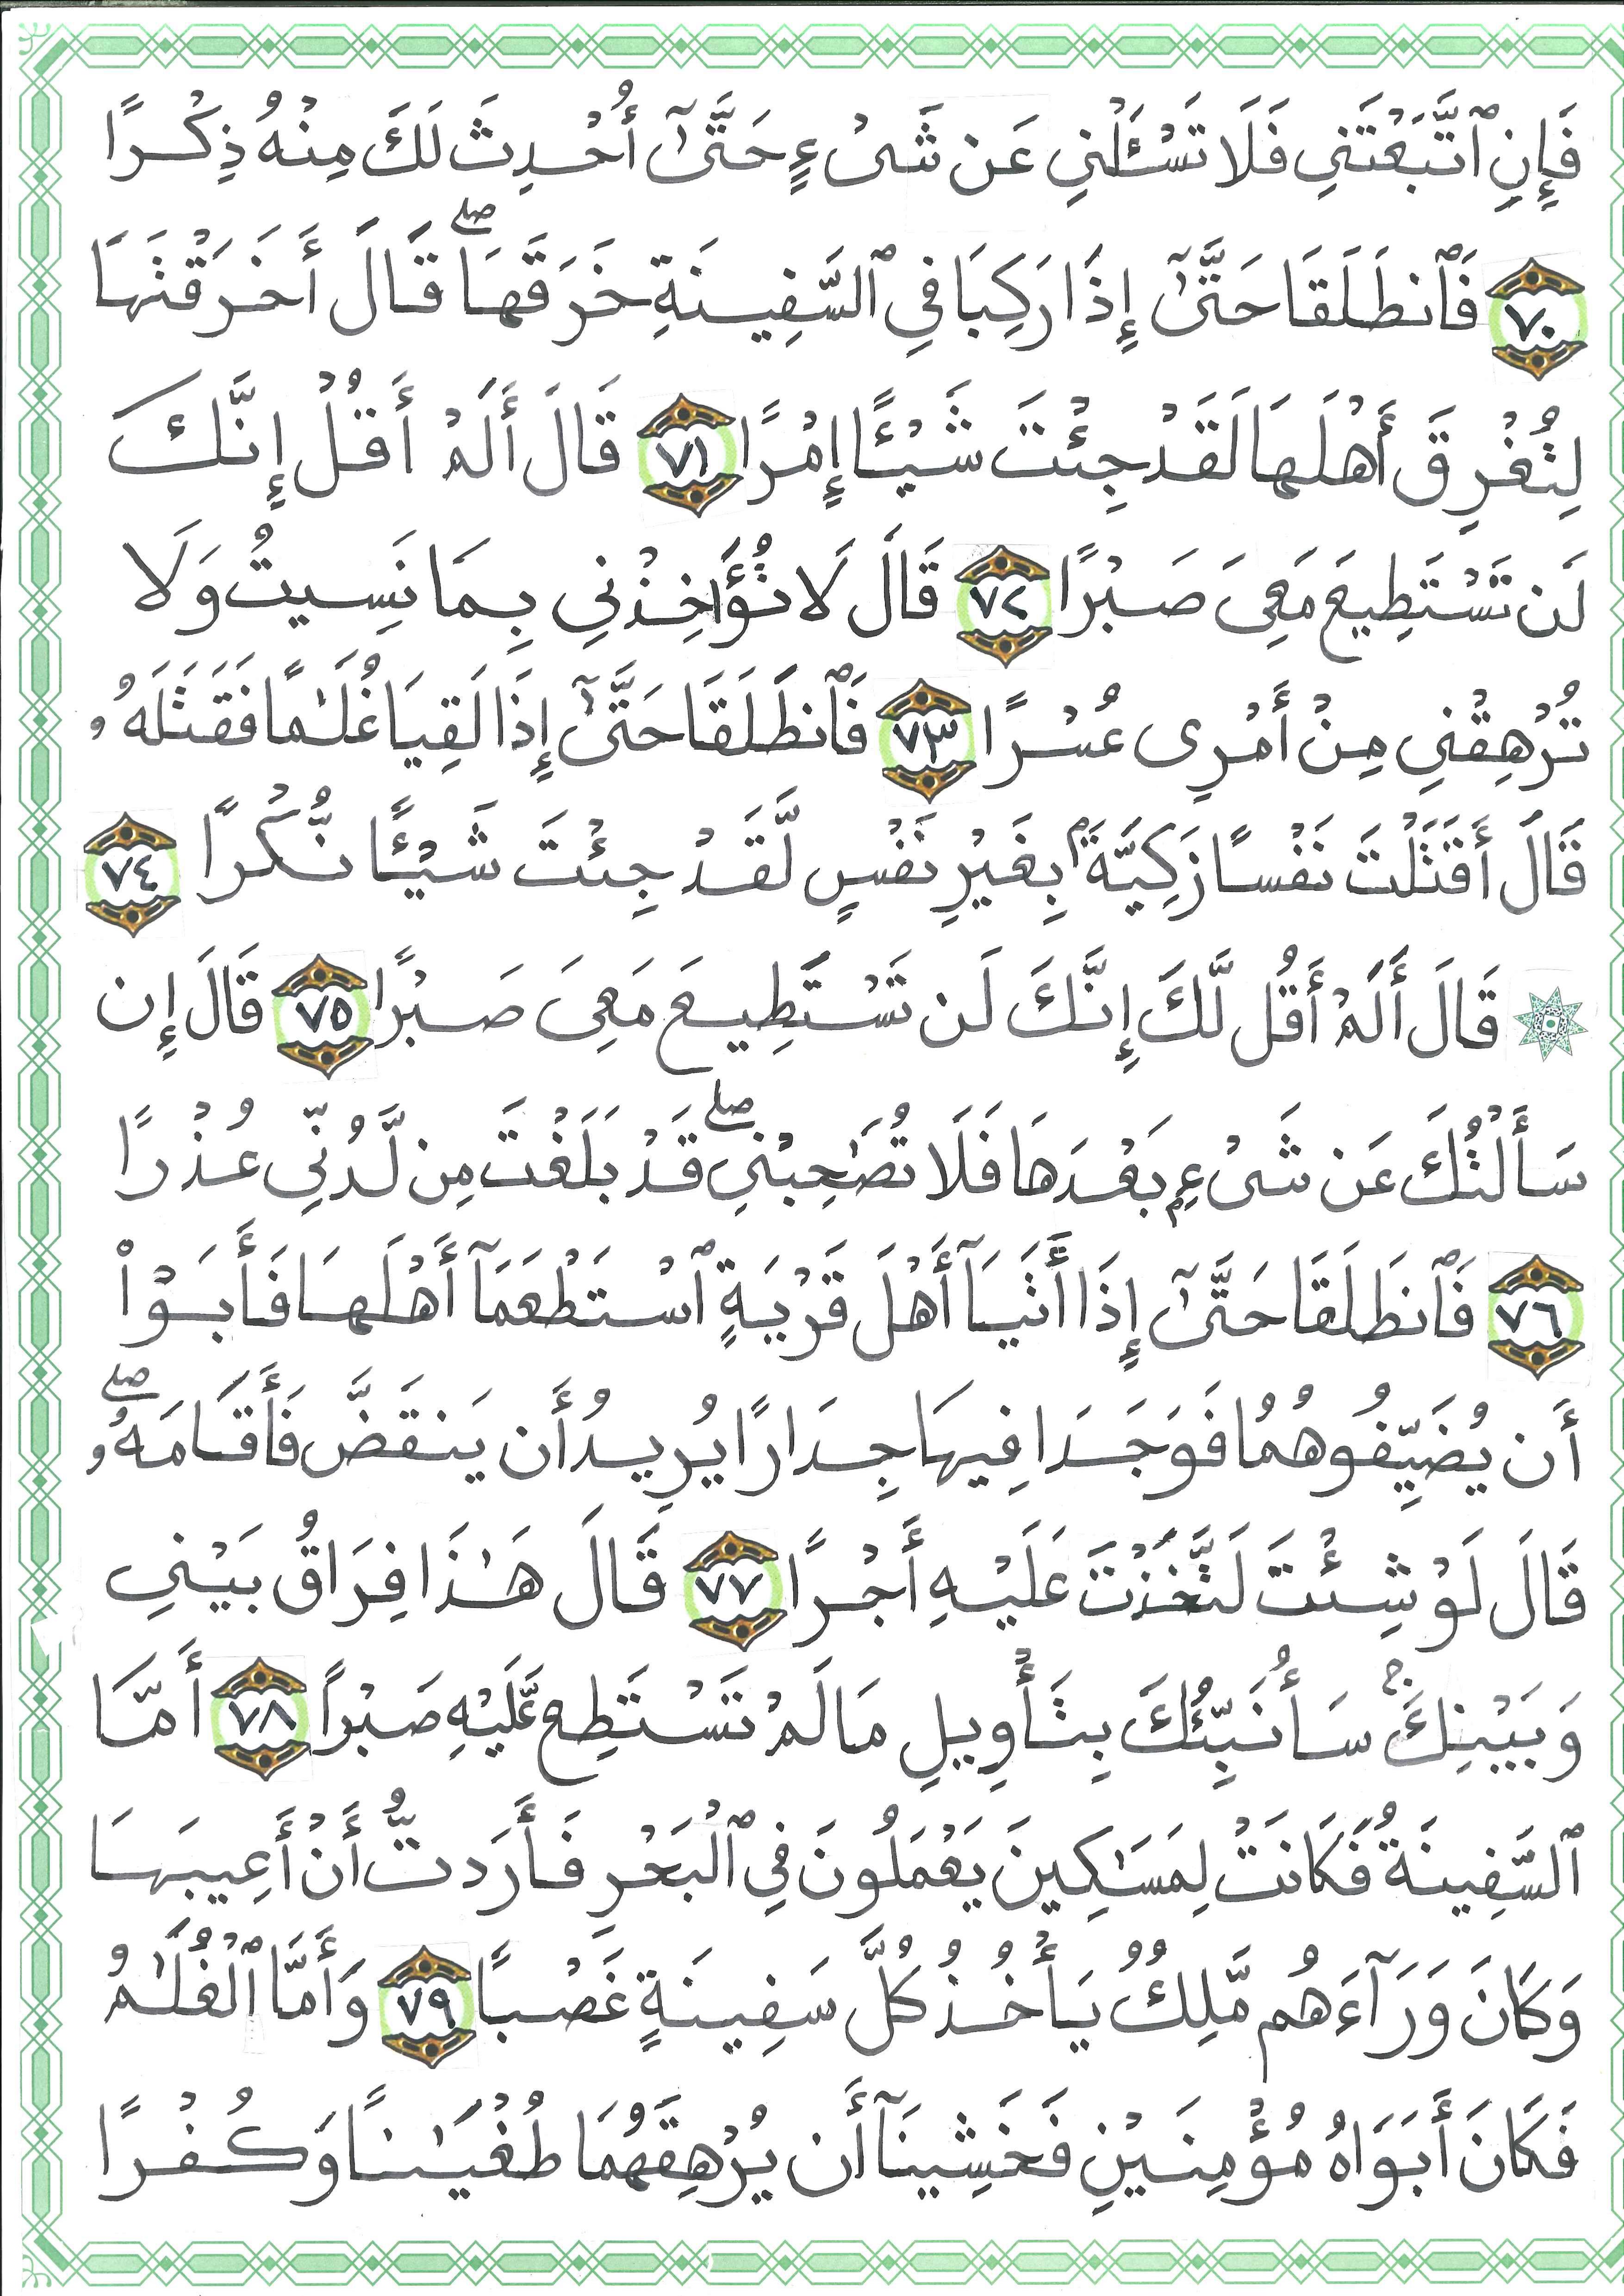 فَإِنِ ٱتَّبَعْتَنِي فَلَا تَسْـَٔلْنِي عَن شَىْءٍ حَتَّىٰٓ أُحْدِثَ لَكَ مِنْهُ ذِكْرًا
٧٠ فَٱنطَلَقَا حَتَّىٰٓ إِذَا رَكِبَا فِي ٱلسَّفِينَةِ خَرَقَهَا ۖ قَالَ أَخَرَقْتَهَا
لِتُغْرِقَ أَهْلَهَا لَقَدْ جِئْتَ شَيْـًٔا إِمْرًا ٧١ قَالَ أَلَمْ أَقُلْ إِنَّكَ
لَن تَسْتَطِيعَ مَعِىَ صَبْرًا ٧٢ قَالَ لَا تُؤَاخِذْنِي بِمَا نَسِيتُ وَلَا
تُرْهِقْنِي مِنْ أَمْرِى عُسْرًا ٧٣ فَٱنطَلَقَا حَتَّىٰٓ إِذَا لَقِيَا غُلَٰمًا فَقَتَلَهُۥ
قَالَ أَقَتَلْتَ نَفْسًا زَكِيَّةَۢ بِغَيْرِ نَفْسٍ لَّقَدْ جِئْتَ شَيْـًٔا نُّكْرًا ٧٤
۞ قَالَ أَلَمْ أَقُل لَّكَ إِنَّكَ لَن تَسْتَطِيعَ مَعِىَ صَبْرًا ٧٥ قَالَ إِن
سَأَلْتُكَ عَن شَىْءِۭ بَعْدَهَا فَلَا تُصَٰحِبْنِي ۖ قَدْ بَلَغْتَ مِن لَّدُنِّي عُذْرًا
٧٦ فَٱنطَلَقَا حَتَّىٰٓ إِذَا أَتَيَآ أَهْلَ قَرْيَةٍ ٱسْتَطْعَمَآ أَهْلَهَا فَأَبَوْا۟
أَن يُضَيِّفُوهُمَا فَوَجَدَا فِيهَا جِدَارًا يُرِيدُ أَن يَنقَضَّ فَأَقَامَهُۥ ۖ
قَالَ لَوْ شِئْتَ لَتَّخَذْتَ عَلَيْهِ أَجْرًا ٧٧ قَالَ هَٰذَا فِرَاقُ بَيْنِي
وَبَيْنِكَ ۚ سَأُنَبِّئُكَ بِتَأْوِيلِ مَا لَمْ تَسْتَطِع عَّلَيْهِ صَبْرًا ٧٨ أَمَّا
ٱلسَّفِينَةُ فَكَانَتْ لِمَسَٰكِينَ يَعْمَلُونَ فِي ٱلْبَحْرِ فَأَرَدتُّ أَنْ أَعِيبَهَا
وَكَانَ وَرَآءَهُم مَّلِكٌ يَأْخُذُ كُلَّ سَفِينَةٍ غَصْبًا ٧٩ وَأَمَّا ٱلْغُلَٰمُ
فَكَانَ أَبَوَاهُ مُؤْمِنَيْنِ فَخَشِينَآ أَن يُرْهِقَهُمَا طُغْيَٰنًا وَكُفْرًا